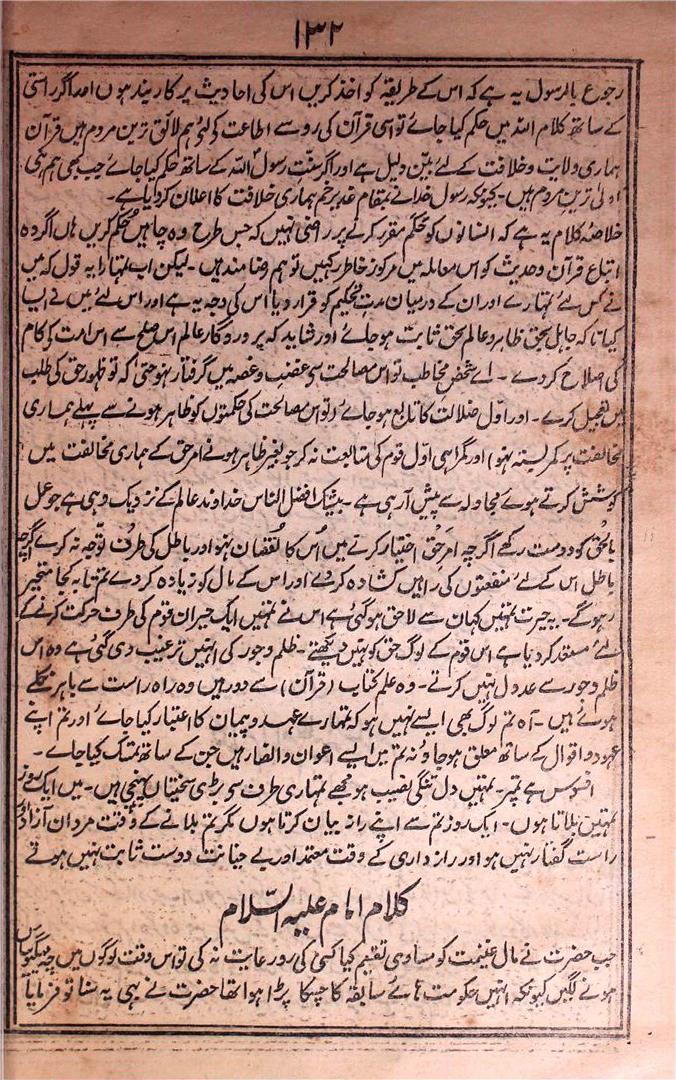 ۱۳۲
رجوع بالرسول یہ ہے کہ اس کے طریقہ کو اخذ کریں اس کی احادیث پر کاربند ہوں اور اگر راستی
کے ساتھ کلام اللہ میں حکم کیا جائے تو اسی قرآن کی رو سے اطاعت کے لئے ہم لائق ترین مردم ہیں قرآن
ہماری ولایت و خلافت کے لئے بیّن دلیل ہے اور اگر سنّت رسولؐ اللہ کے ساتھ حکم کیا جائے جب بھی ہم ہی
اولیٰ ترین مردم ہیں۔ کیونکہ رسول خدا نے بمقام غدیر خم ہماری خلافت کا اعلان کر دیا ہے۔
خلاصہ کلام یہ ہے کہ انسانوں کو حَکم مقرر کرنے پر راضی نہیں کہ جس طرح وہ چاہیں حُکم کریں ہاں اگر وہ
اتباع قرآن و حدیث کو اس معاملہ میں مرکوز خاطر رکھیں تو ہم رضا مند ہیں۔ لیکن اب تمہارا یہ قول کہ میں
نے کس لئے تمہارے اور ان کے درمیان مدت تحکیم کو قرار دیا اس کی وجہ یہ ہے اور اس لئے میں نے ایسا
کیا تاکہ جاہل بحق ظاہر و عالم بحق ثابت ہو جائے اور شاید کہ پروردگار عالم اس صلح سے اس امت کے کام
کی صلاح کر دے۔ اے شخص مخاطب تو اس مصالحت سے غضب و غصہ میں گرفتار نہ ہو حتیٰ کہ تو ظہور حق کی طلب
میں تعجیل کرے۔ اور اول ضلالت کا تابع ہو جائے (تو اس مصالحت کی حکمتوں کو ظاہر ہونے سے پہلے ہماری
مخالفت پر کمر بستہ نہو) اور گمراہی اوّل قوم کی متابعت نہ کر جو بغیر ظاہر ہونے امر حق کے ہماری مخالفت میں
کوشش کرتے ہوئے مجادلہ سے پیش آرہی ہے۔ بیشک افضل الناس خداوند عالم کے نزدیک وہی ہے جو عمل
بالحق کو دوست رکھے اگرچہ امر حق اختیار کرنے میں اُس کا نقصان ہو اور باطل کی طرف توجہ نہ کرے اگرچہ
باطل اس کے لئے منفعتوں کی راہیں کشادہ کر دے اور اس کے مال کو زیادہ کر دے تم تا بہ کجا متحیر
رہو گے۔ یہ حیرت تمہیں کہاں سے لاحق ہو گئی ہے اس نے تمہیں ایک حیران قوم کی طرف حرکت کرنے کے
لئے مستعد کر دیا ہے اس قوم کے لوگ حق کو نہیں دیکھتے۔ ظلم و جور کی انہیں ترغیب دی گئی ہے وہ اس
ظلم و جور سے عدول نہیں کرتے۔ وہ علم کتاب (قرآن) سے دور ہیں وہ راہ راست سے باہر نکلے
ہوئے ہیں۔ آہ تم لوگ بھی ایسے نہیں ہو کہ تمہارے عہد و پیمان کا اعتبار کیا جائے اور تم اپنے
عہود و اقوال کے ساتھ معلق ہو جاؤ نہ تم میں ایسے اعوان و انصار ہیں جن کے ساتھ تمسک کیا جائے۔
افسوس ہے تم پر۔ تمہیں دل تنگی نصیب ہو مجھے تمہاری طرف سے بڑی سختیاں پہنچی ہیں۔ میں ایک روز
تمہیں بلاتا ہوں۔ ایک روز تم سے اپنے راز بیان کرتا ہوں مگر تم بلانے کے وقت مردان آزاد و
راست گفتار نہیں ہو اور راز داری کے وقت معتمد اور بے خیانت دوست ثابت نہیں ہوتے
کلام امام علیہ السّلام
جب حضرت نے مال غنیمت کو مساوی تقسیم کیا کسی کی رو رعایت نہ کی تو اس وقت لوگوں میں چہ میگوئیاں
ہونے لگیں کیونکہ انہیں حکومت ہائے سابقہ کا چسکا پڑا ہوا تھا حضرت نے بھی یہ سنا تو فرمایا